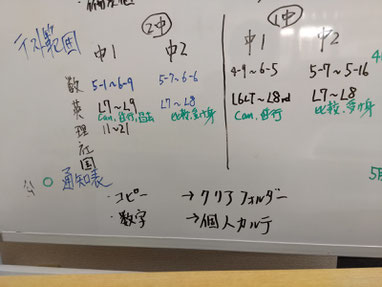 テスト範囲
2中
1中
中1 中2 中1 中2
数 5-1~6-9 5-7~6-6 4-9~6-5 5-7~5-16
英 L7~L9 L7~L8 L6~L8 L7~L8
Can, 進行, 過去 比較, 受け身 Can, 進行 比較, 受け身
理 11~21
社
国
通知表
・コピー → クリアフォルダー
・数字 → 個人カルテ